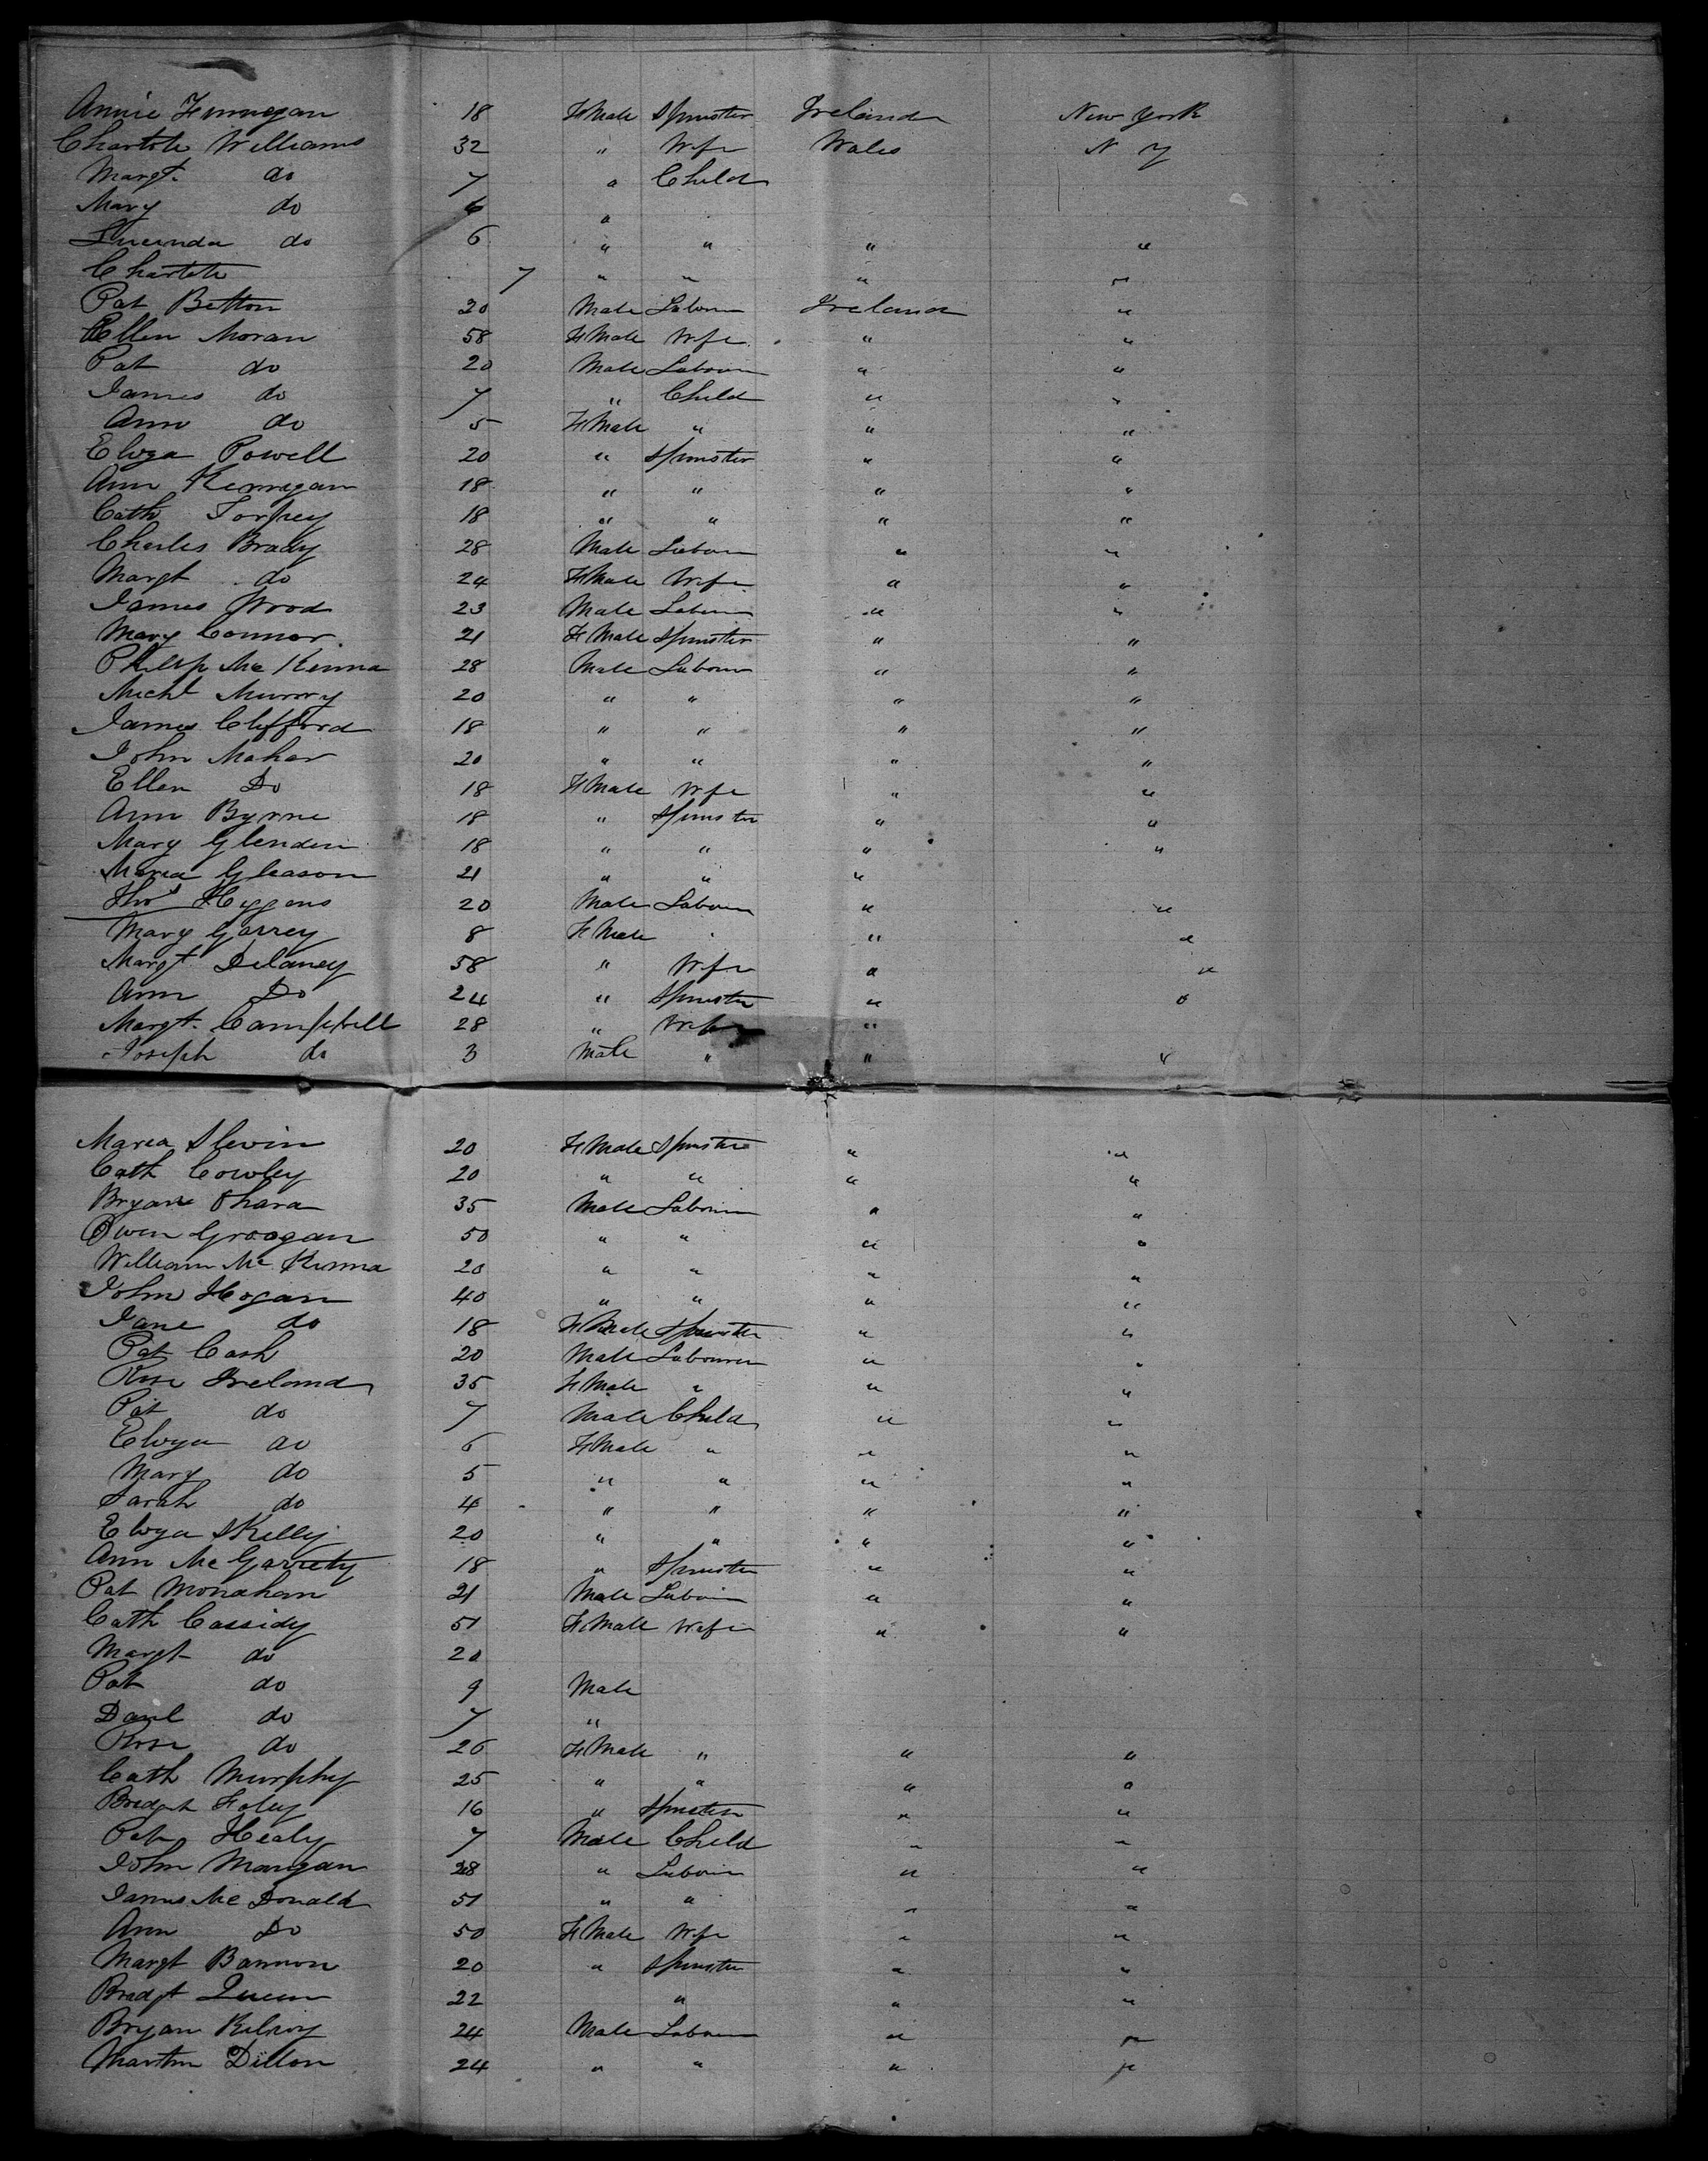 Annie Finnegan 18 FMale Spinster Ireland New York
Charlotte Williams 32 " Wife Wales N Y
Margt. do 7 " Child
Mary do 6 "
Lucinda do 6 " " " "
Charlotte 7 " " " "
Pat Betton 20 Male Labour Ireland "
Ellen Moran 58 FMale Wife " "
Pat do 20 Male Labour " "
James do 7 " Child " "
Ann do 5 FMale " " "
Eliza Powell 20 " Spinster " "
Ann Kernigan 18 " " " "
Cath Torpey 18 " " " "
Charles Brady 28 Male Labour " "
Margt do 24 FMale Wife " "
James Wood 23 Male Labour " "
Mary Connor 21 FMale Spinster " "
Philip McKenna 28 Male Labour " "
Michl Murry 20 " " " "
James Clifford 18 " " " "
John Maher 20 " " " "
Ellen Do 18 FMale Wife " "
Ann Byrne 18 " Spinster " "
Mary Glendin 18 " " " "
Maria Gleason 21 " " "
Thos Higgens 20 Male Labour " "
Mary Garrey 8 FMale " "
Margt Delaney 58 " Wife " "
Ann Do 24 " Spinster " "
Margt. Campbell 28 " Wife "
Joseph do 3 Male " " "
Maria Slevin 20 FMale Spinster " "
Cath Cowley 20 " " " "
Bryan Ohara 35 Male Labour " "
Owen Groogan 50 " " " "
William McKenna 20 " " " "
John Hogan 40 " " " "
Jane do 18 FMale Spinster " "
Pat Cash 20 Male Labourer " "
Rose Ireland 35 FMale " " "
Pat do 7 Male Child " "
Eliza do 6 FMale " " "
Mary do 5 " " " "
Sarah do 4 " " " "
Eliza Skelly 20 " " " "
Ann McGarrety 18 " Spinster " "
Pat Monahan 21 Male Labour " "
Cath Cassidy 51 FMale Wife " "
Margt do 20
Pat do 9 Male
Danl do 7 "
Rose do 26 FMale " " "
Cath Murphy 25 " " " "
Bridgt Foley 16 " Spinster " "
Pat Healy 7 Male Child " "
John Mangan 28 " Labour " "
James McDonald 51 " " " "
Ann Do 50 FMale Wife " "
Margt Bannon 20 " Spinster " "
Bridgt Queen 22 " " "
Bryan Kilroy 24 Male Labour " "
Martin Dillon 24 " " " "